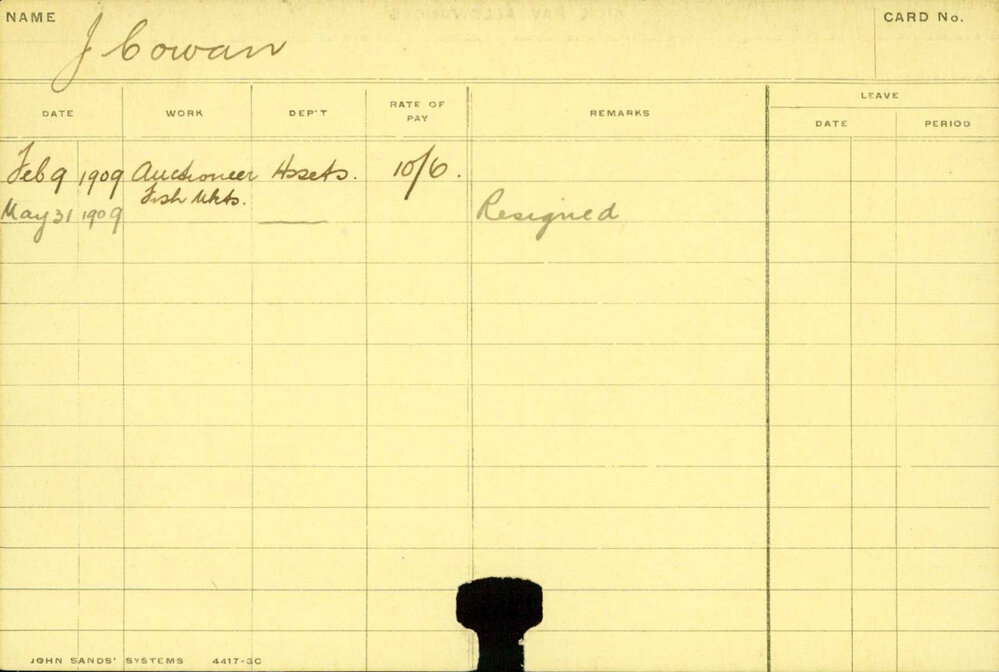 NAME
J Cowan
CARD No.
DATE WORK DEP'T RATE OF PAY REMARKS LEAVE
DATE PERIOD
Feb 9 1909 Auctioneer Assets. 10/6.
Fish Mkts.
May 31 1909 Resigned
JOHN SANDS' SYSTEMS 4417-3C